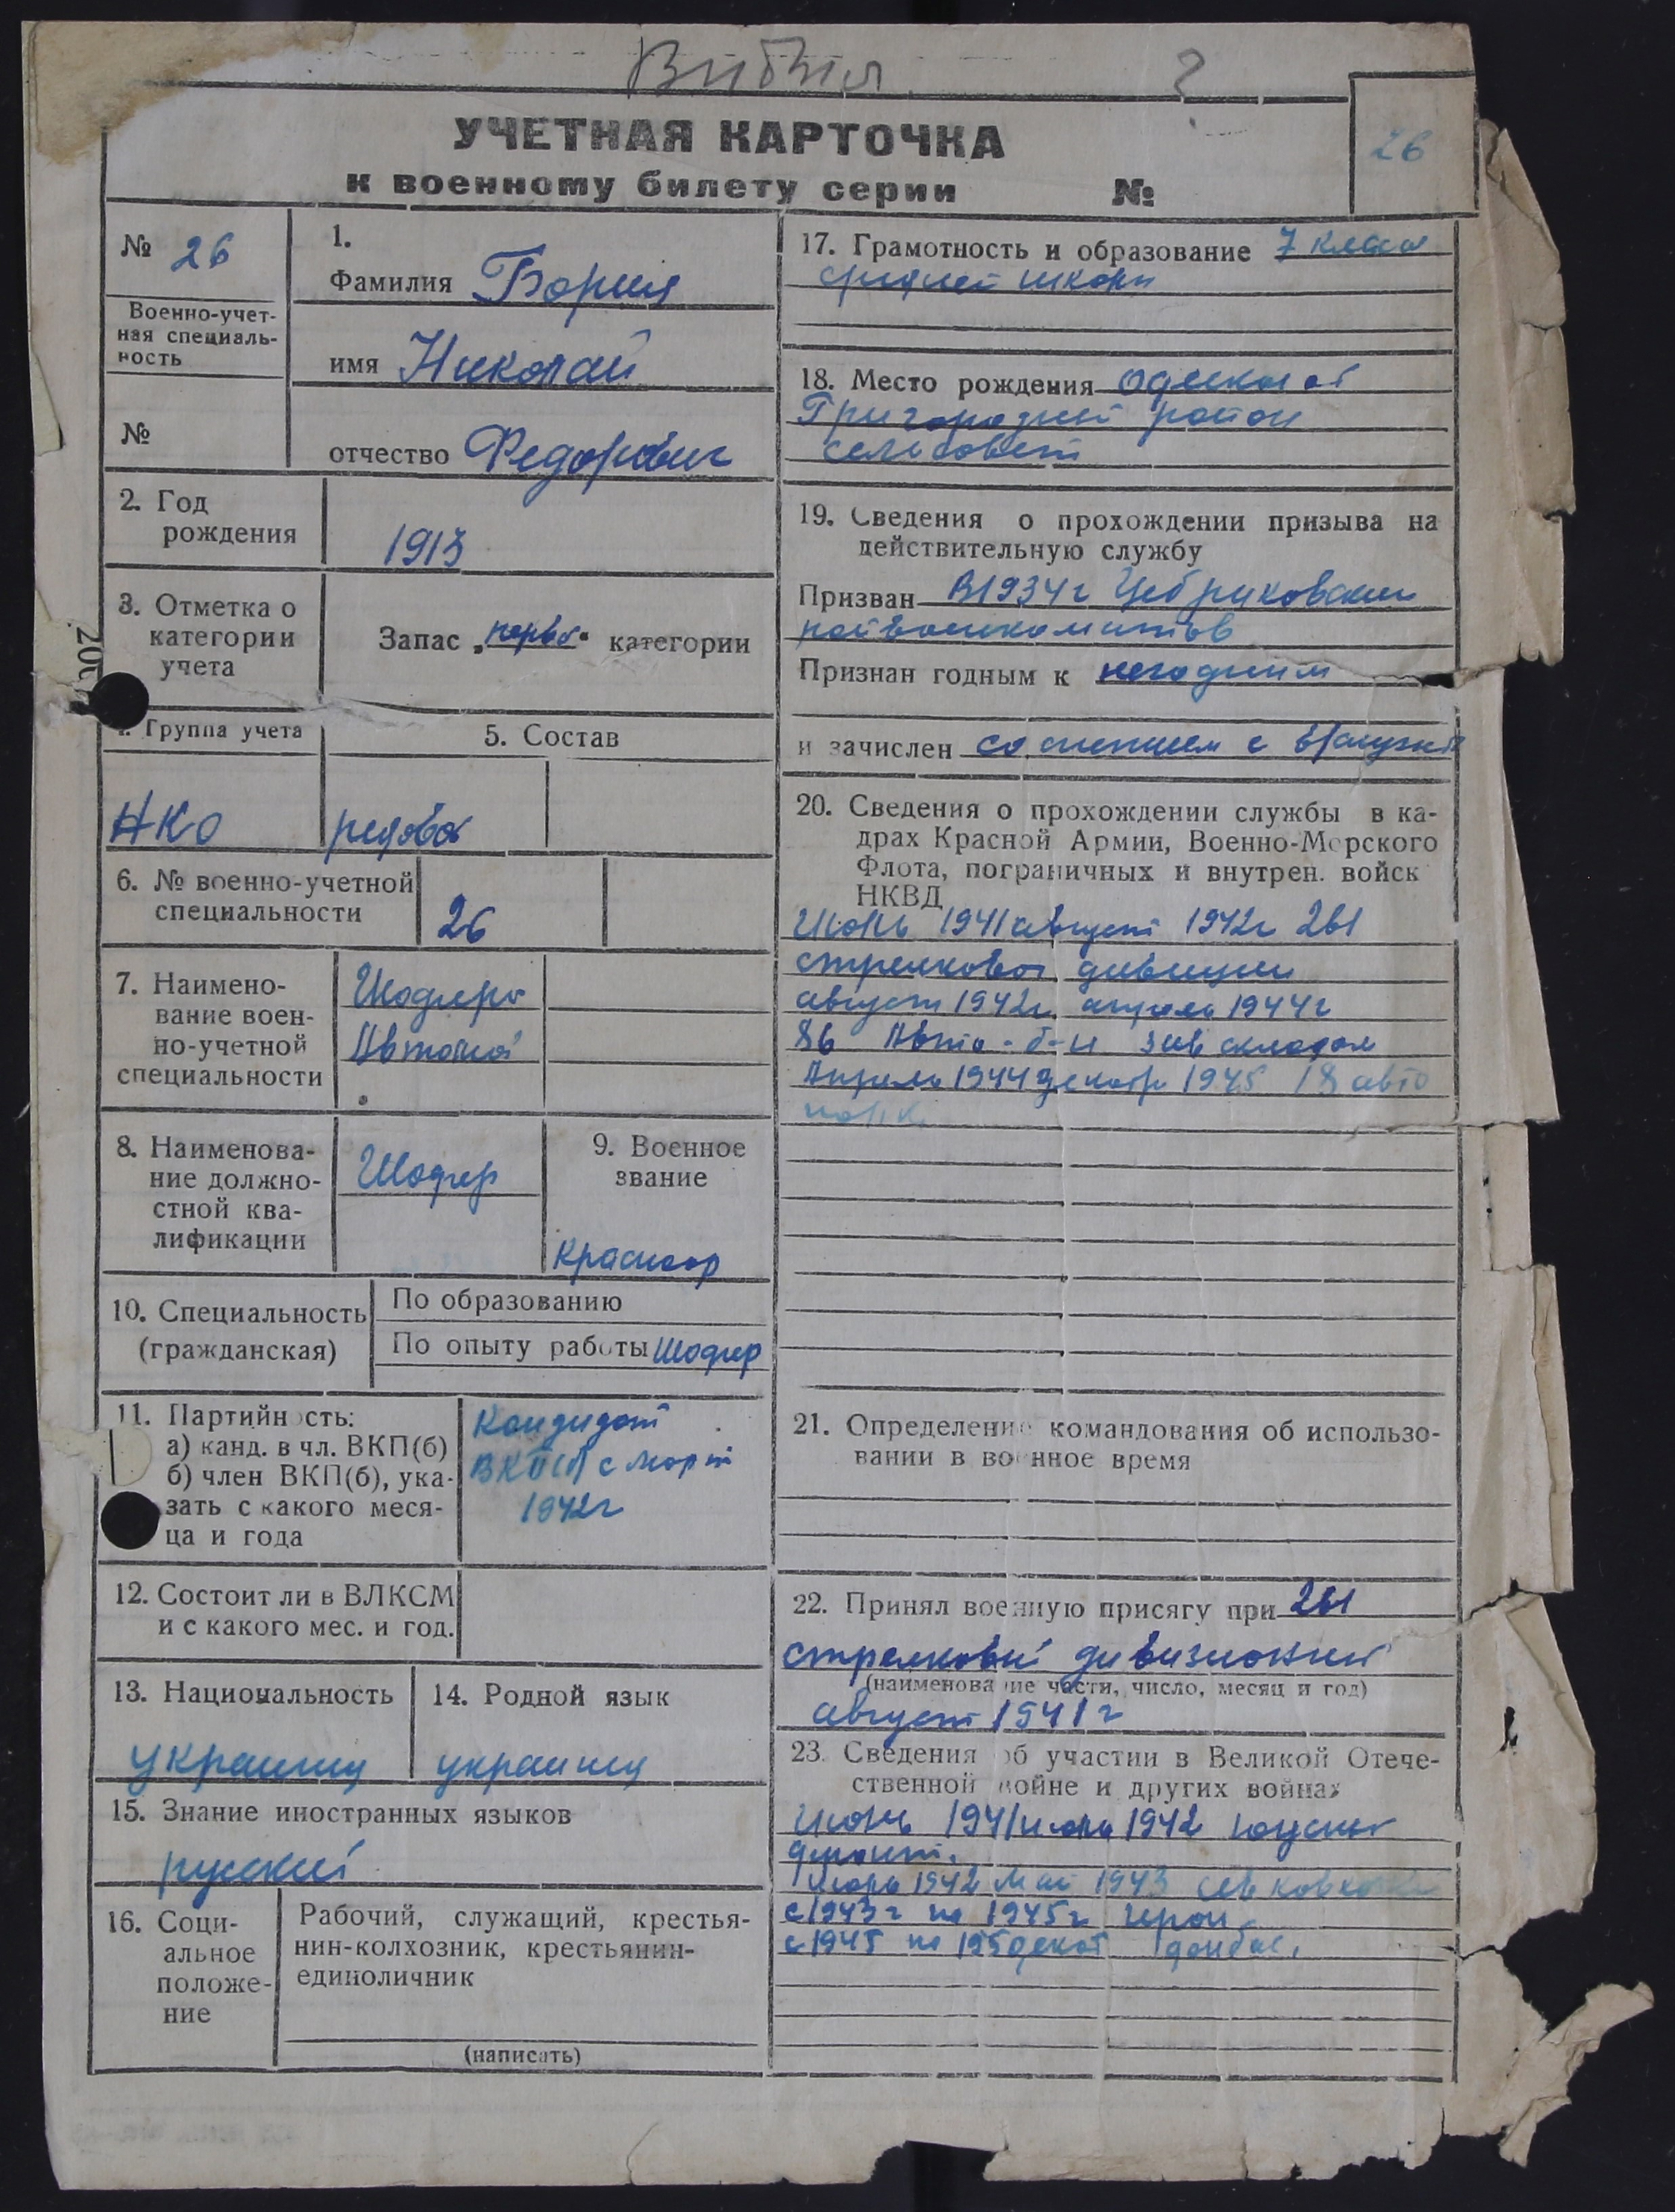 Вибил ?
УЧЕТНАЯ КАРТОЧКА
к военному билету серии №
26
№ 26
Военно-учет-
ная специаль-
ность
№
1.
Фамилия
имя Николай
отчество Федорович
2. Год
рождения
1913
3. Отметка о
категории
учета
Запас „перво“ категории
Группа учета
НКО
5. Состав
рядовой
6. № военно-учетной
специальности
26
7. Наимено-
вание воен-
но-учетной
специальности
Шофера
8. Наименова-
ние должно-
стной ква-
лификации
Шофер
9. Военное
звание
Красноар
10. Специальность
(гражданская)
По образованию
По опыту работы Шофер
11. Партийность:
а) канд. в чл. ВКП(б)
б) член ВКП(б), ука-
зать с какого меся-
ца и года
Кандидат
ВКП(б) с март
1942г
12. Состоит ли в ВЛКСМ
и с какого мес. и год.
13. Национальность
украинц
14. Родной язык
украинц
15. Знание иностранных языков
русский
16. Соци-
альное
положе-
ние
Рабочий, служащий, крестья-
нин-колхозник, крестьянин-
единоличник
(написать)
17. Грамотность и образование 7 класса
средней школи
18. Место рождения
район
сельсовет
19. Сведения о прохождении призыва на
действительную службу
Призван В 1934г Цебриковским
райвоенкоматов
Признан годным к негодним
и зачислен со снятием с
20. Сведения о прохождении службы в ка-
драх Красной Армии, Военно-Морского
Флота, пограничных и внутрен. войск
НКВД
Июнь 1941 август 1942г 261
стрелковой дивизии
август 1942г апрель 1944г
86 Авто-б-н зав складом
Апрель 1944 декабр 1945 18 авто
21. Определение командования об использо-
вании в военное время
22. Принял военную присягу при 261
стрелковий дивизионий
(наименование части, число, месяц и год)
август 1941г
23. Сведения об участии в Великой Отече-
ственной войне и других войнах
Июнь 1941 июль 1942
фронт.
Июль 1942 Май 1943
с 1943г по 1945г
с 1945 по донбас.